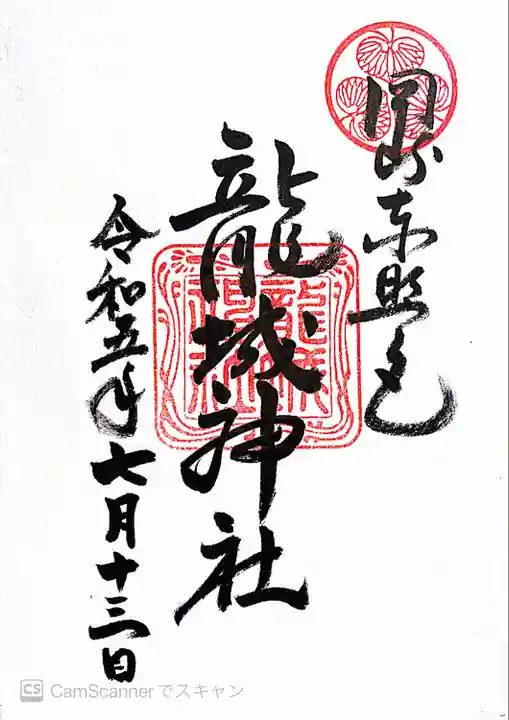 岡崎東照宮
龍城神社
令和五年七月十三日
CS CamScannerでスキャン